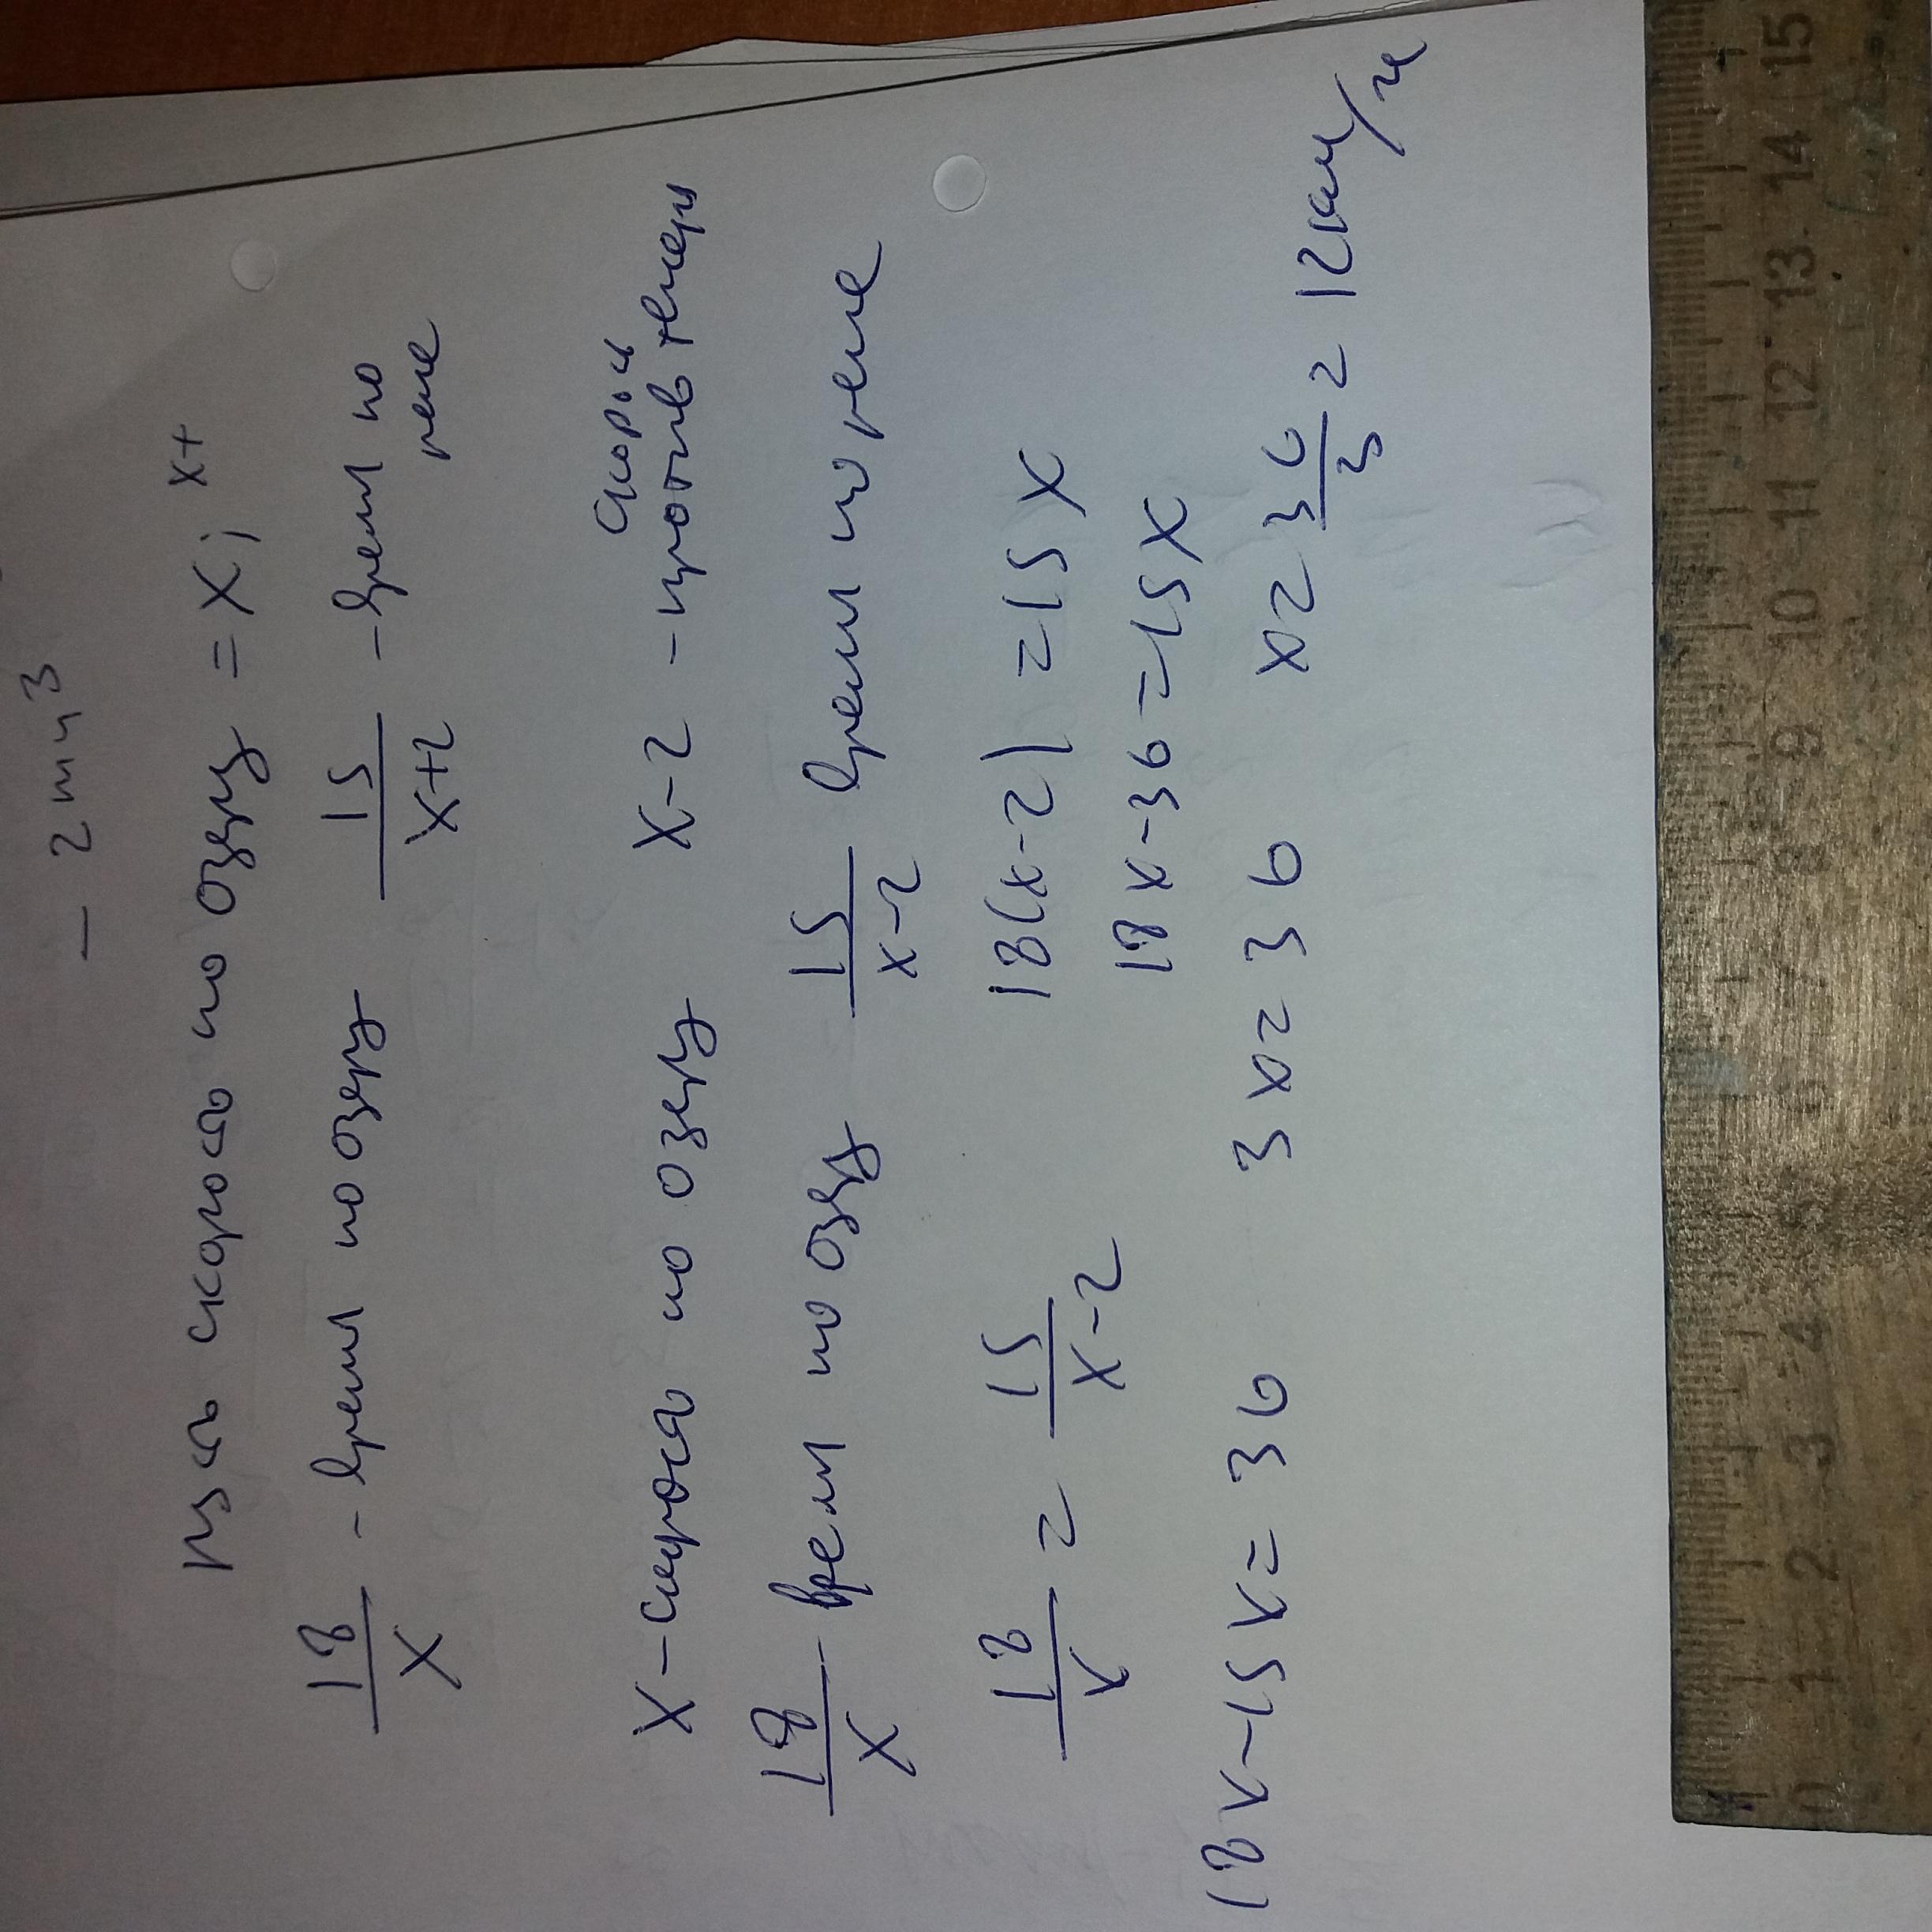 - 2 m n³
Пусть скорость по озеру = x; x+
18/x - время по озеру 15/x+2 - время по реке
x - скорость по озеру x-2 - скорость против течения
18/x - время по озеру 15/x-2 время по реке
18/x = 15/x-2 18(x-2) = 15x
18x-36=15x
18x-15x=36 3x=36 x=36/3=12км/ч
0 1 2 3 4 5 6 7 8 9 10 11 12 13 14 15